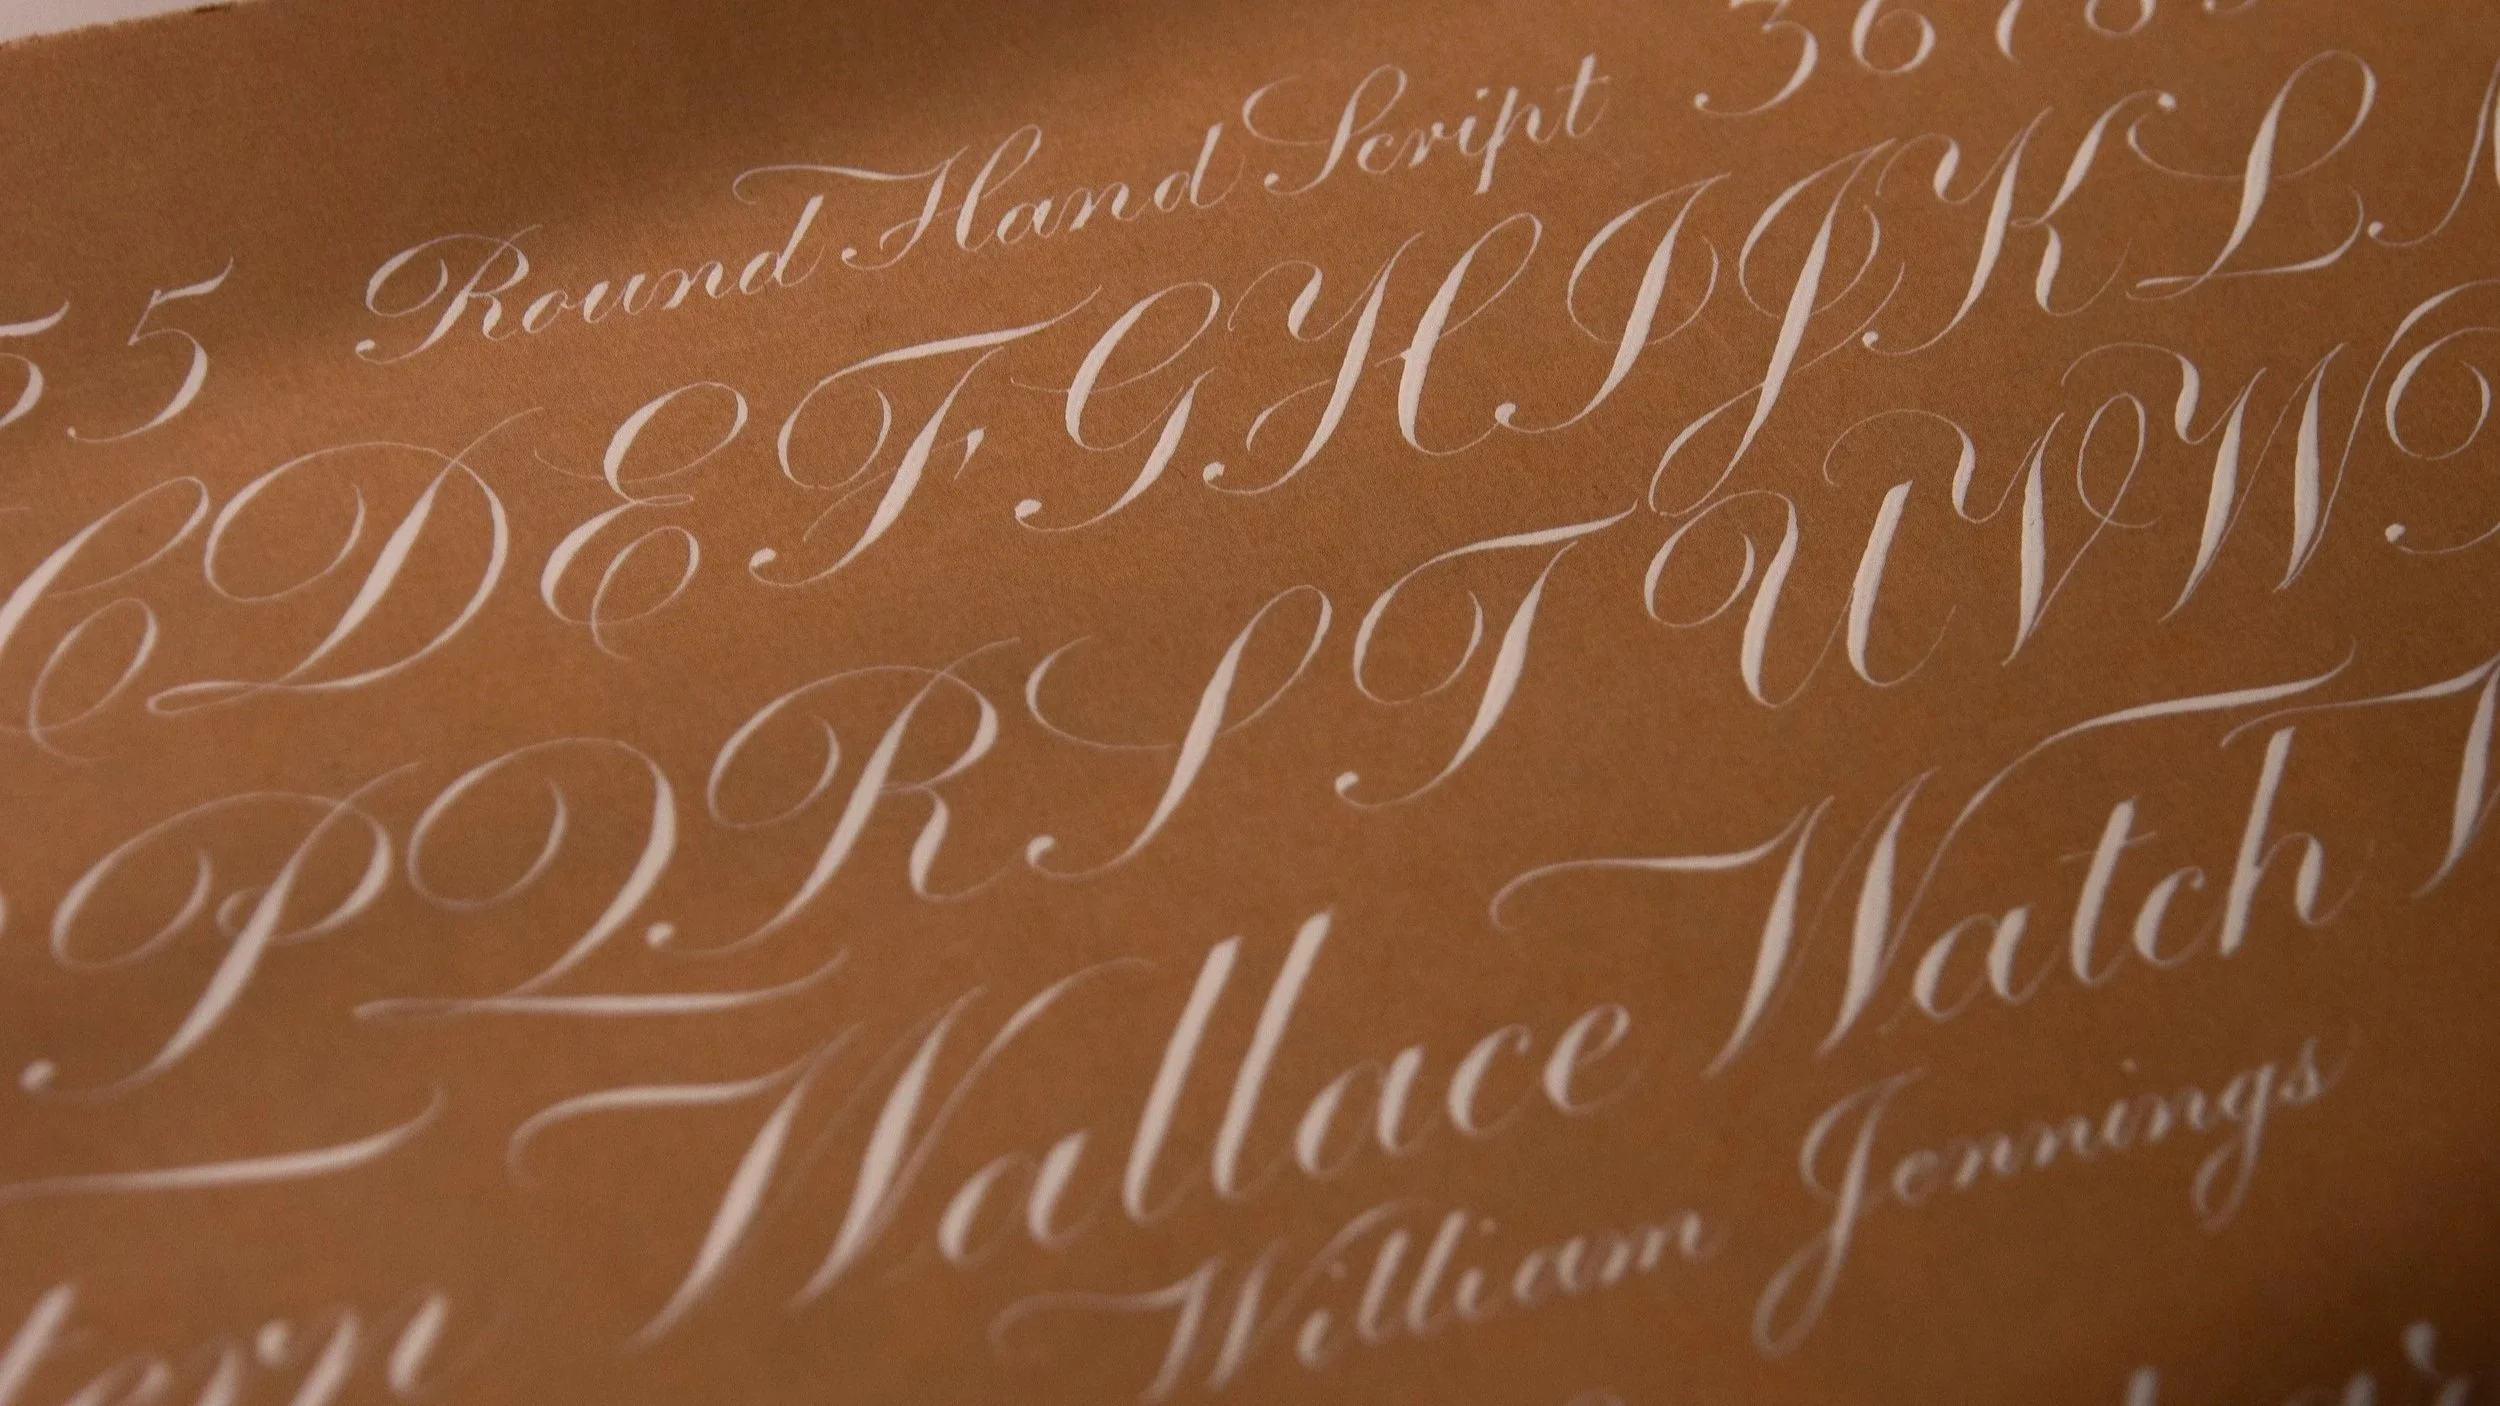 5 5 Round Hand Script 3 6 7 8
C D E F G H I J K L
P Q R S T U V W
Wallace Watch
William Jennings